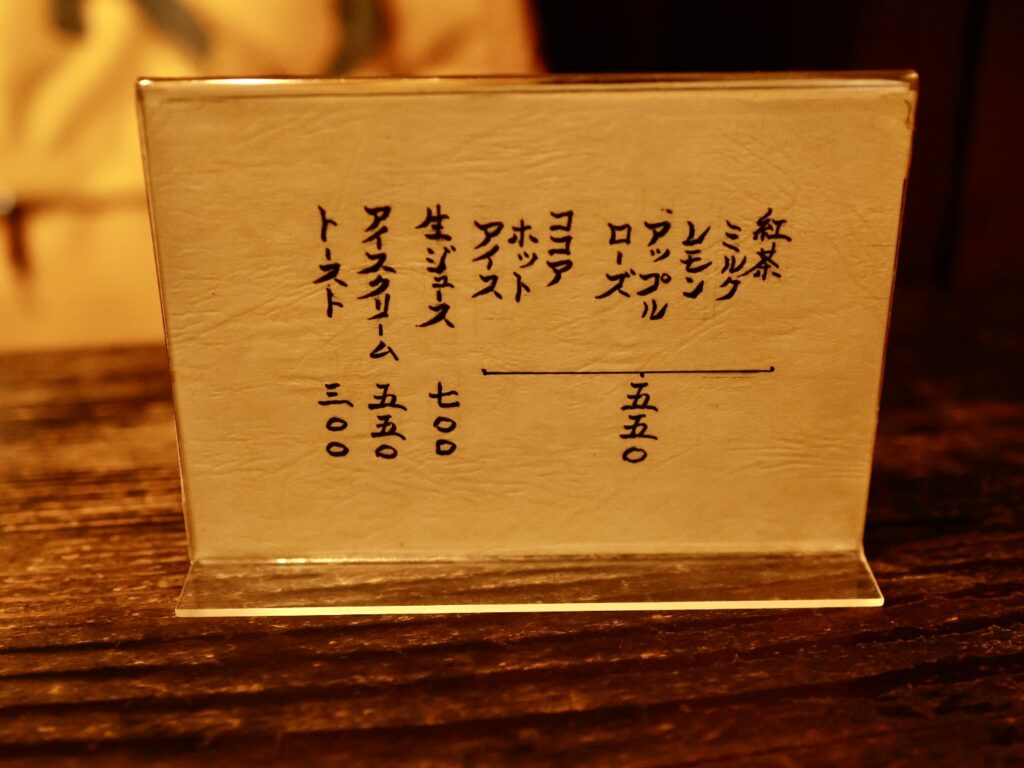 紅茶
ミルク
レモン
アップル
ローズ
ココア
ホット
アイス
五五〇
生ジュース 七〇〇
アイスクリーム 五五〇
トースト 三〇〇